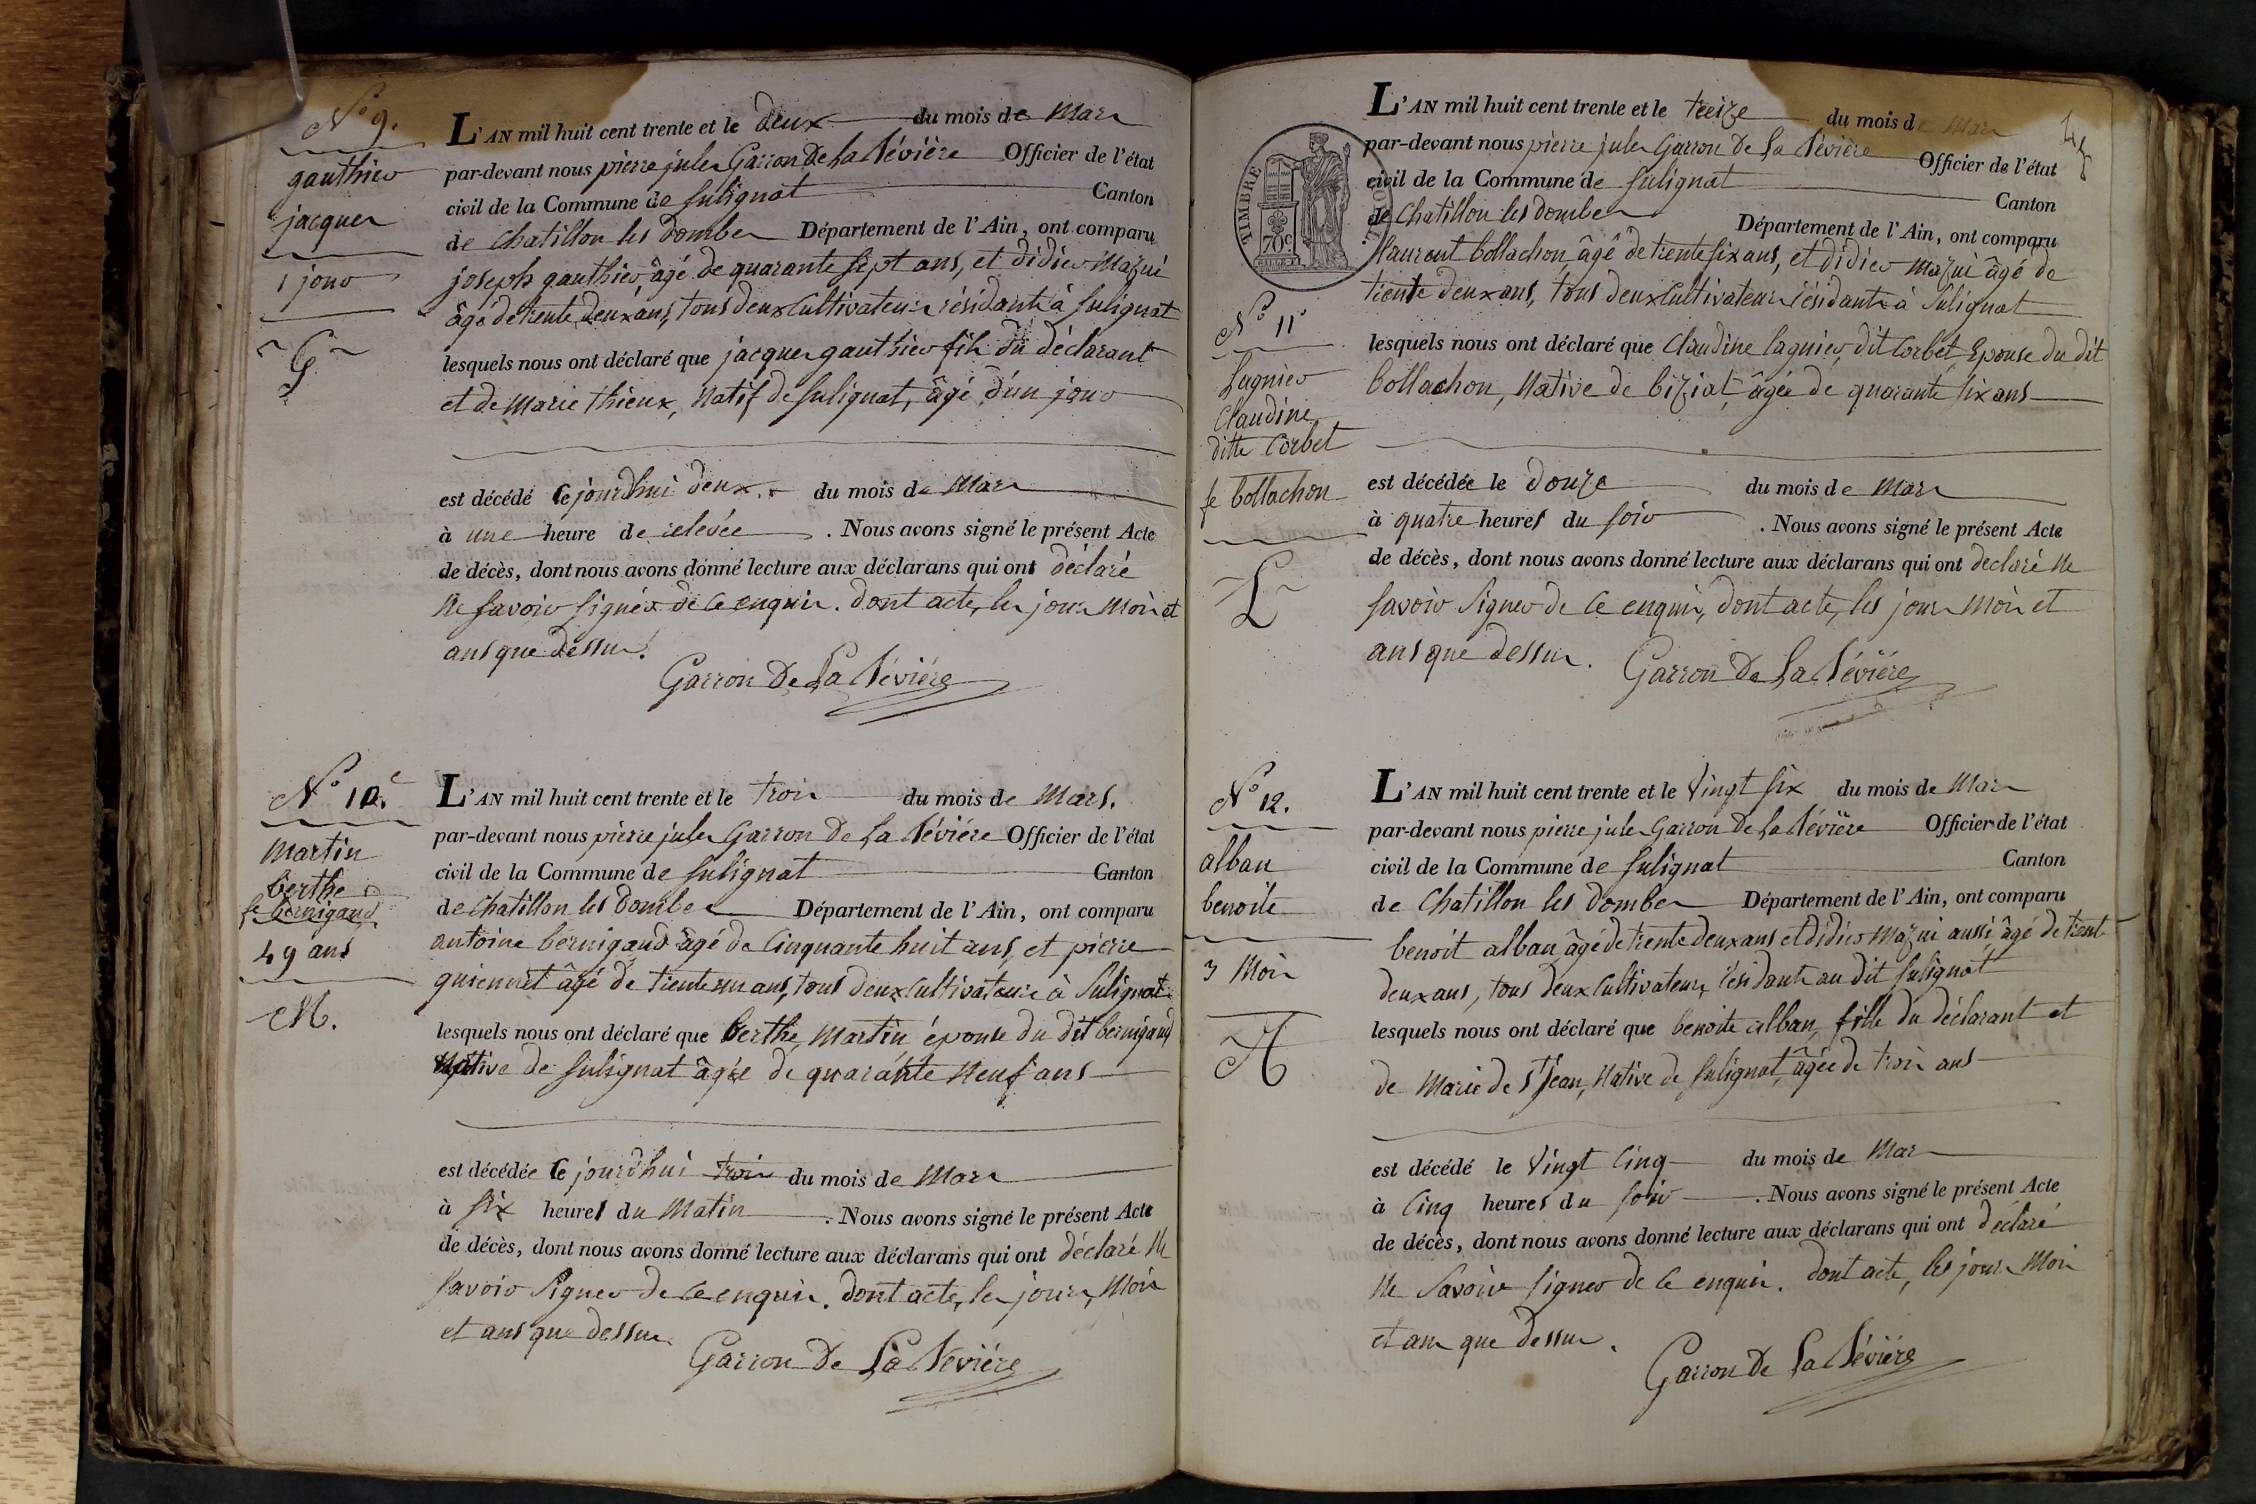 N.o 9.
gauthier
jacques
1 jour
G
L'AN mil huit cent trente et le deux du mois de Mars
par-devant nous pierre jules Garron De La Bévière Officier de l'état
civil de la Commune de Sulignat Canton
de Chatillon les Dombes Département de l'Ain, ont comparu
joseph gauthier, âgé de quarante sept ans, et didier Mazui
âgé de trente deux ans, tous deux Cultivateurs résidants à Sulignat
lesquels nous ont déclaré que jacques gauthier fils du déclarant
et de Marie thieux, Natif de Sulignat, âgé d'un jour
est décédé cejourdhui deux du mois de Mars
à une heure de relevée . Nous avons signé le présent Acte
de décès, dont nous avons donné lecture aux déclarans qui ont déclaré
Ne savoir signer de ce enquis. dont acte, les jour Mois et
ans que dessus.
Garron De La Bévière
N.o 10.e
Martin
berthe
fe bernigaud
49 ans
M.
L'AN mil huit cent trente et le trois du mois de Mars.
par-devant nous pierre jules Garron De La Bévière Officier de l'état
civil de la Commune de Sulignat Canton
de Chatillon les Dombes Département de l'Ain, ont comparu
antoine bernigaud âgé de Cinquante huit ans, et pierre
quiennet âgé de trente un ans, tous deux Cultivateurs à Sulignat
lesquels nous ont déclaré que berthe Martin épouse du dit bernigaud
Native de Sulignat âgée de quarante Neuf ans
est décédée Cejourd'hui trois du mois de Mars
à six heures du Matin . Nous avons signé le présent Acte
de décès, dont nous avons donné lecture aux déclarans qui ont déclaré Ne
savoir signer de ce enquis. dont acte, les jours, Mois
et ans que dessus
Garron De La Bévière
45
L'AN mil huit cent trente et le treize du mois de Mars
par-devant nous pierre jules Garron De La Bévière Officier de l'état
civil de la Commune de Sulignat Canton
de Chatillon les Dombes Département de l'Ain, ont comparu
laurent bollachon, âgé de trente six ans, et didier Mazui âgé de
trente deux ans, tous deux Cultivateurs résidants à Sulignat
lesquels nous ont déclaré que Claudine lagnier, dit Corbet Epouse du dit
bollachon, Native de biziat, âgée de quarante six ans
est décédée le douze du mois de Mars
à quatre heures du soir . Nous avons signé le présent Acte
de décès, dont nous avons donné lecture aux déclarans qui ont déclaré Ne
savoir signer de ce enquis, dont acte, les jours Mois et
ans que dessus.
Garron De La Bévière
TIMBRE
70c
N.o 11
Lagnier
Claudine
ditte Corbet
fe bollachon
L
N.o 12.
alban
benoite
3 Mois
A
L'AN mil huit cent trente et le Vingt six du mois de Mars
par-devant nous pierre jules Garron De La Bévière Officier de l'état
civil de la Commune de Sulignat Canton
de Chatillon les Dombes Département de l'Ain, ont comparu
benoit alban, âgé de trente deux ans et didier Mazui aussi âgé de trent
deux ans, tous deux Cultivateurs, résidants au dit Sulignat
lesquels nous ont déclaré que benoite alban, fille du déclarant et
de Marie de St Jean, Native de Sulignat, âgée de trois ans
est décédé le Vingt Cinq du mois de Mars
à Cinq heures du soir . Nous avons signé le présent Acte
de décès, dont nous avons donné lecture aux déclarans qui ont déclaré
Ne savoir signer de ce enquis. dont acte, les jours Mois
et ans que dessus.
Garron De La Bévière